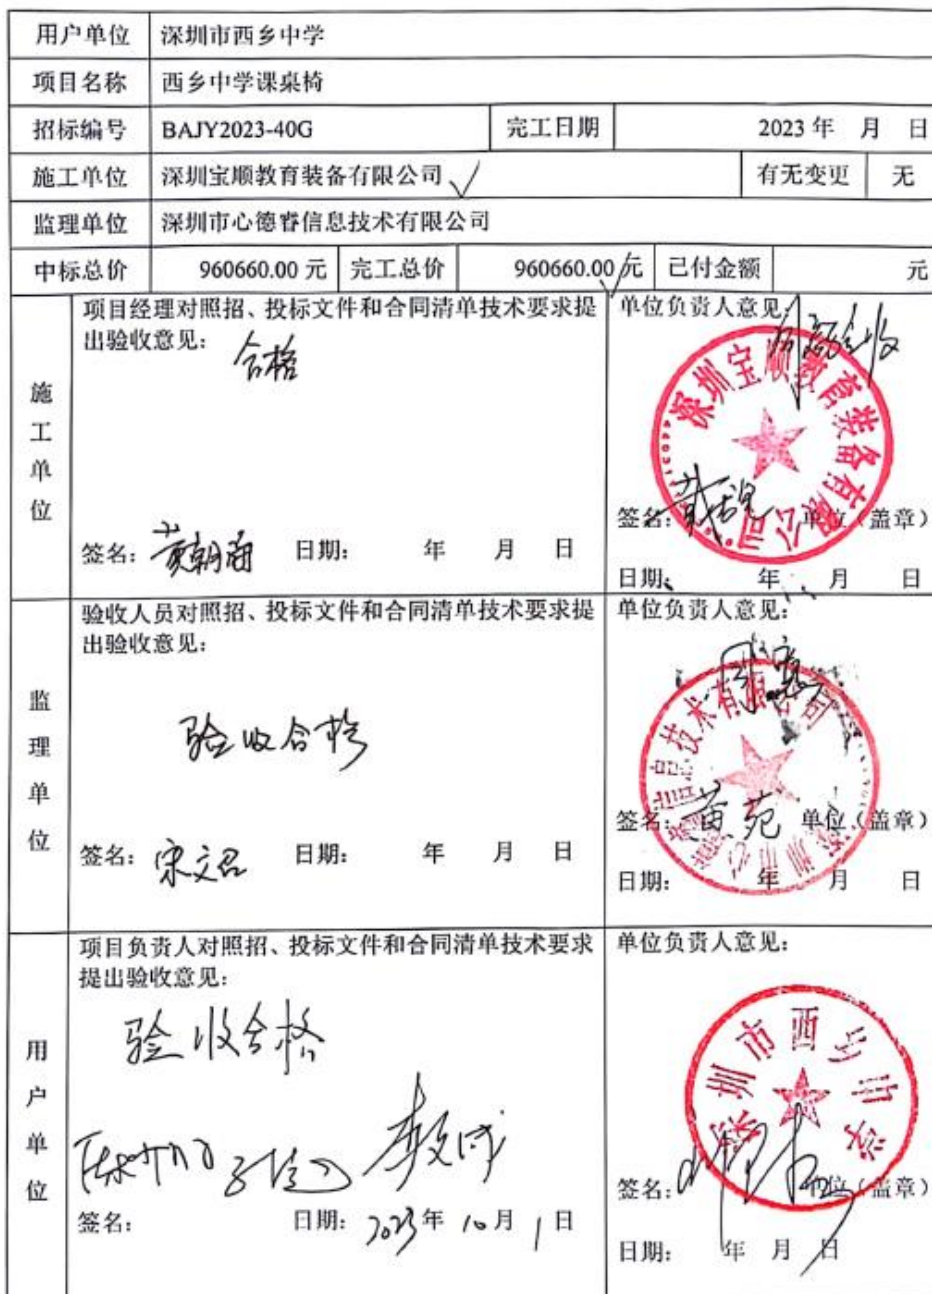 用户单位 深圳市西乡中学
项目名称 西乡中学课桌椅
招标编号 BAJY2023-40G 完工日期 2023 年 月 日
施工单位 深圳宝顺教育装备有限公司 有无变更 无
监理单位 深圳市心德睿信息技术有限公司
中标总价 960660.00 元 完工总价 960660.00 元 已付金额 元
施工单位
项目经理对照招、投标文件和合同清单技术要求提
出验收意见：
合格
签名： 黄朝海 日期： 年 月 日
单位负责人意见：
深圳宝顺教育装备有限公司
签名： 单位（盖章）
日期： 年 月 日
监理单位
验收人员对照招、投标文件和合同清单技术要求提
出验收意见：
验收合格
签名： 宋文君 日期： 年 月 日
单位负责人意见：
同意
信息技术有限公司
签名： 黄苑 单位（盖章）
日期： 年 月 日
用户单位
项目负责人对照招、投标文件和合同清单技术要求
提出验收意见：
验收合格
签名： 日期： 2023 年 10 月 1 日
单位负责人意见：
深圳市西乡中学
签名： 单位（盖章）
日期： 年 月 日